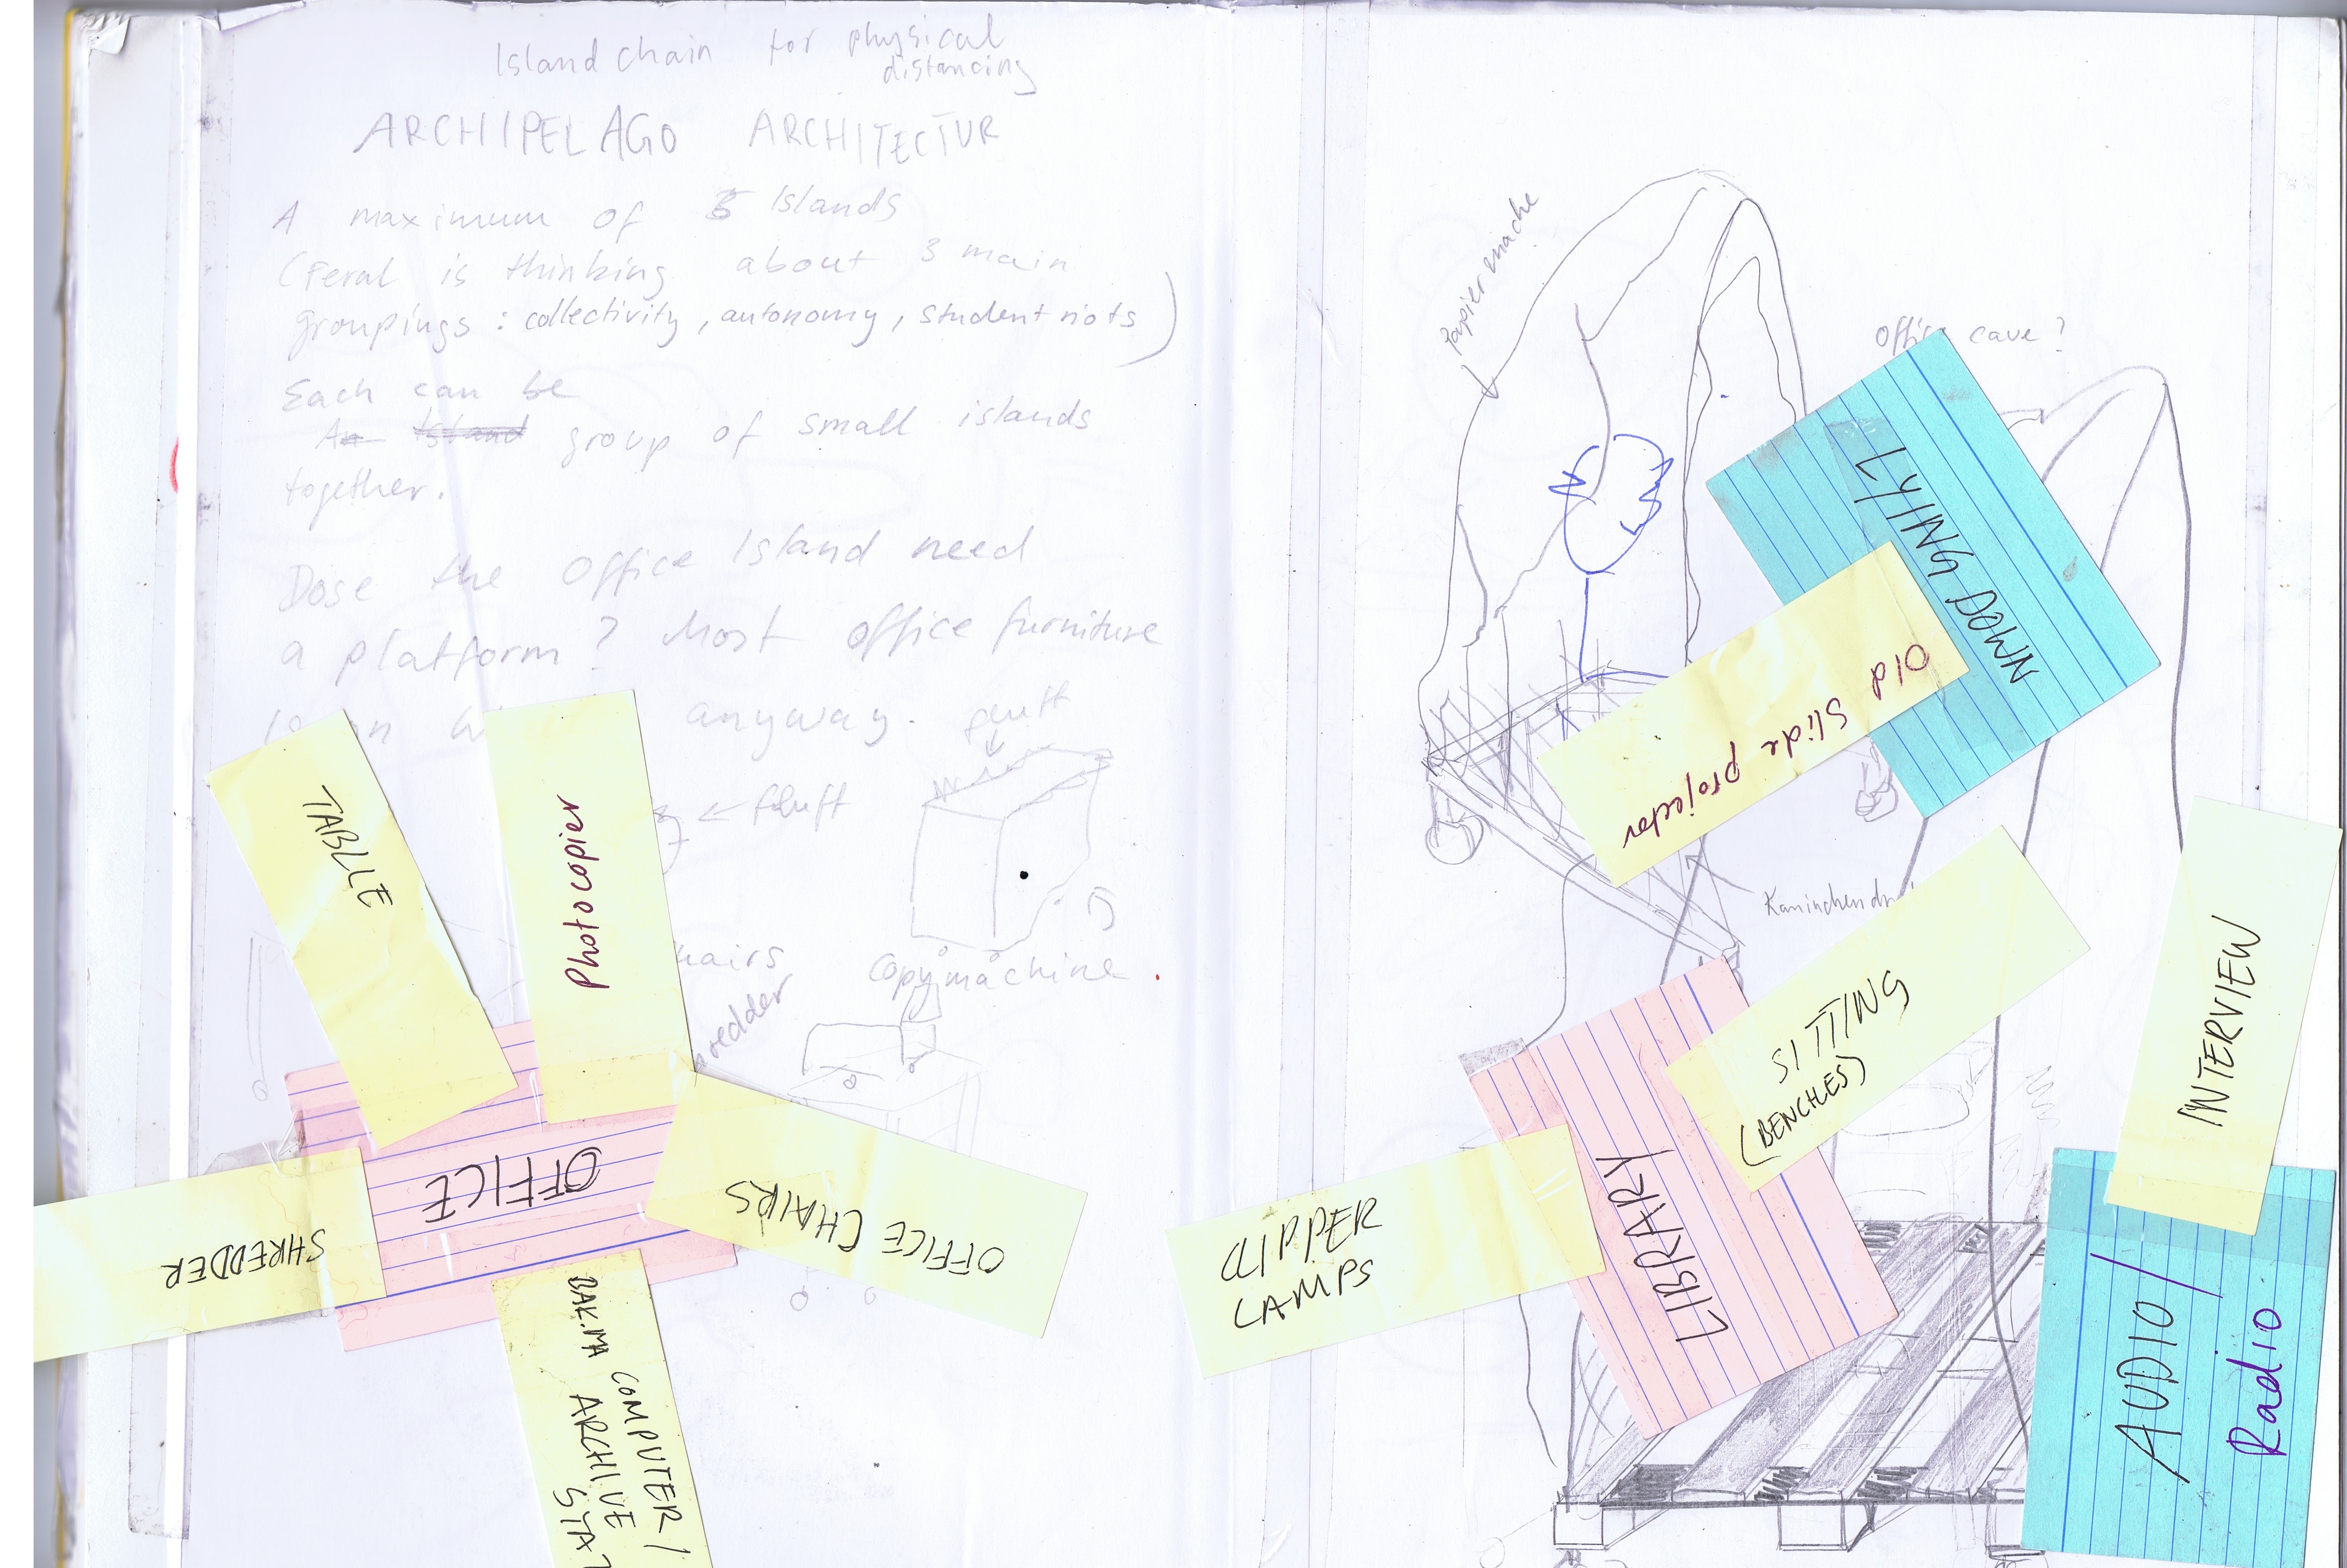 Island chain for physical
distancing
ARCHIPELAGO ARCHITECTUR
A maximum of 5 Islands
(Feral is thinking about 3 main
groupings : collectivity, autonomy, student riots)
Each can be
An Island group of small islands
together.
Dose the Office Island need
a platform? Most office furniture
anyway.
fluff
← fluff
hairs
Copy machine
redder
TABLE
Photocopier
OFFICE
SHREDDER
OFFICE CHAIRS
BAK.MA COMPUTER/
ARCHIVE
STAT
Papier mache
Office cave?
LYING DOWN
Old Slide projector
Kaninchendr
SITTING
(BENCHES)
LIBRARY
CLIPPER
LAMPS
INTERVIEW
AUDIO/
Radio